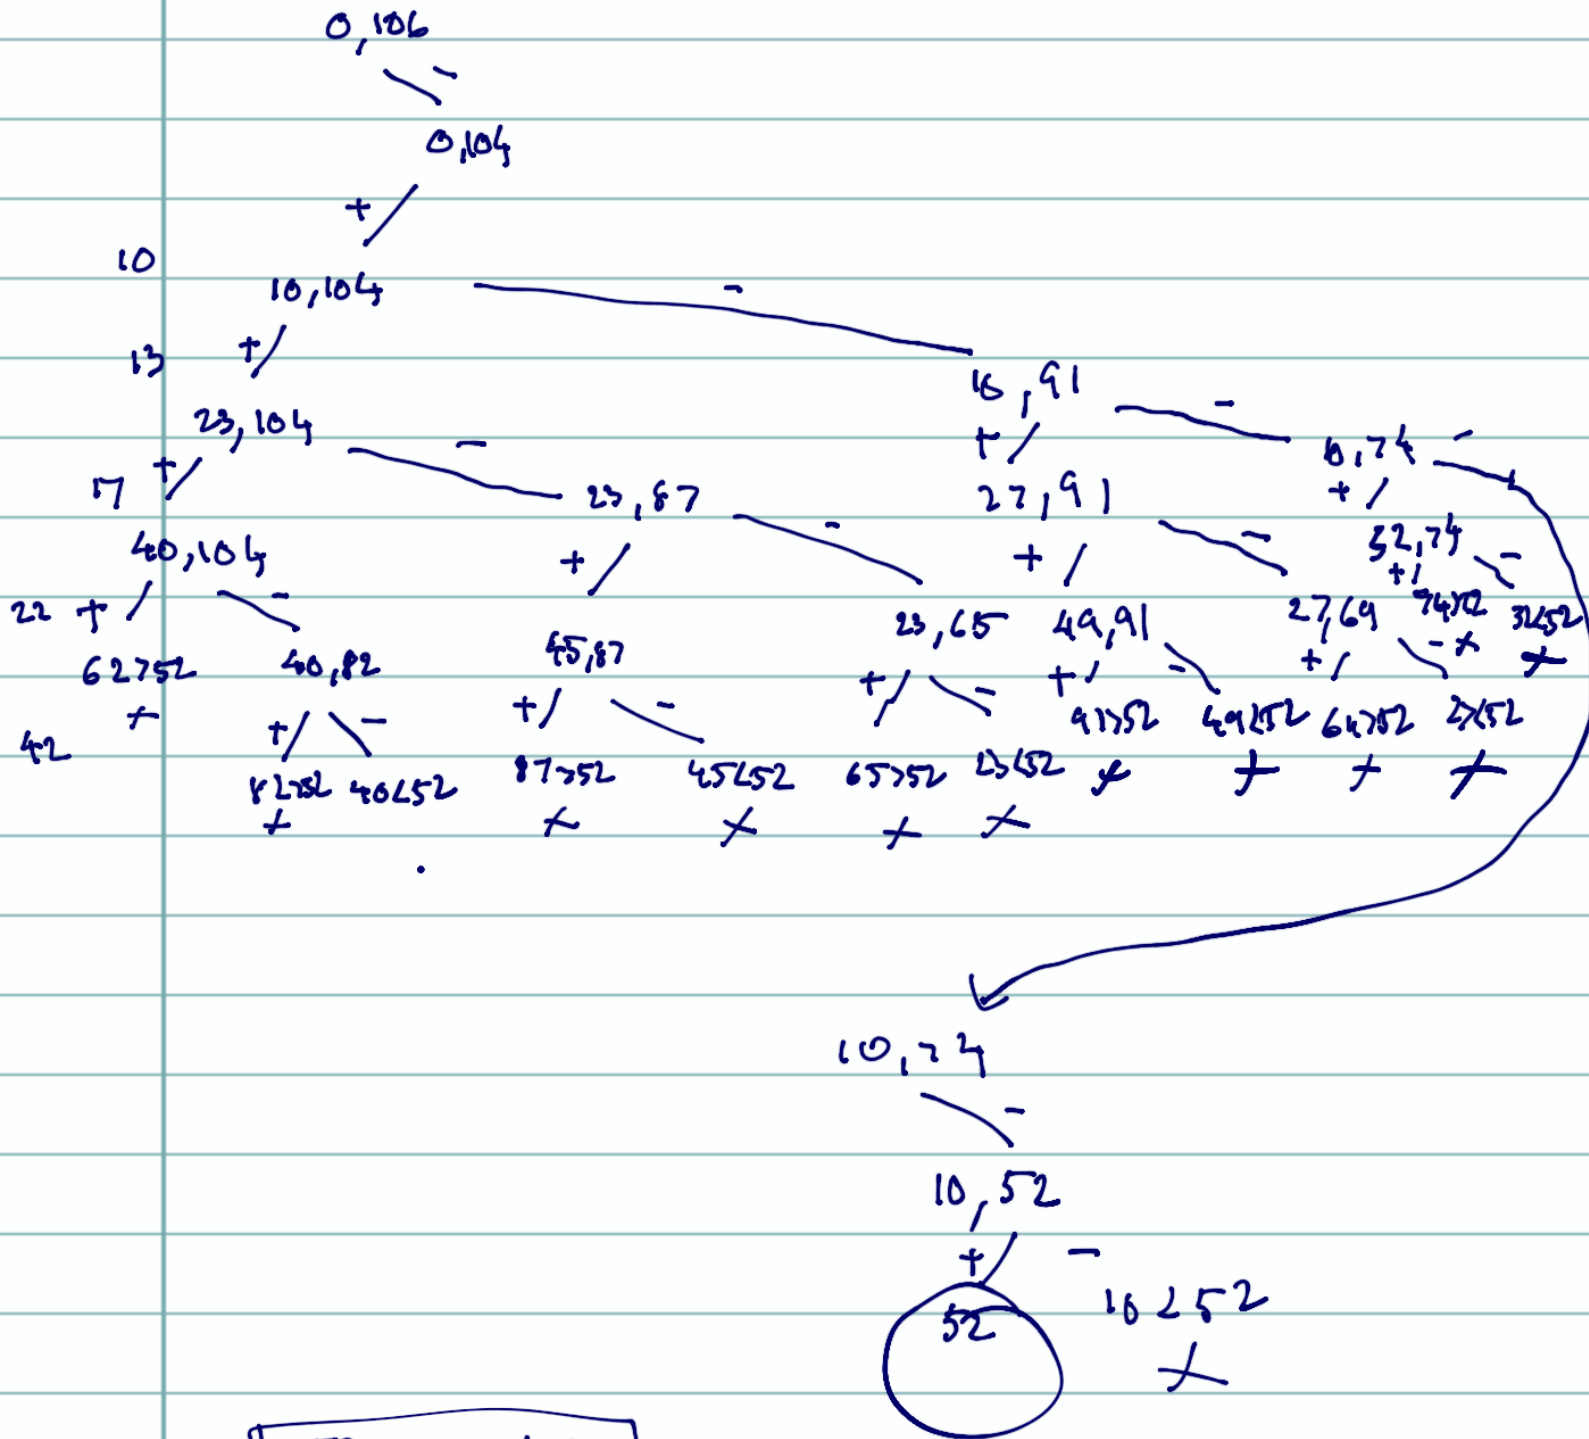 0,106
-
0,104
+
10
10,104 -
13 +
10,91 -
23,104 - + 10,74 -
17 + 23,87 - 27,91 - +
40,104 - + + 32,74 -
22 + 23,65 49,91 27,69 + 74>52 32<52
62>52 40,82 45,87 + - + - + -
42 + - + - 91>52 49<52 64>52 27<52
82>52 40<52 87>52 45<52 65>52 23<52
10,74
-
10,52
+ -
52 10<52